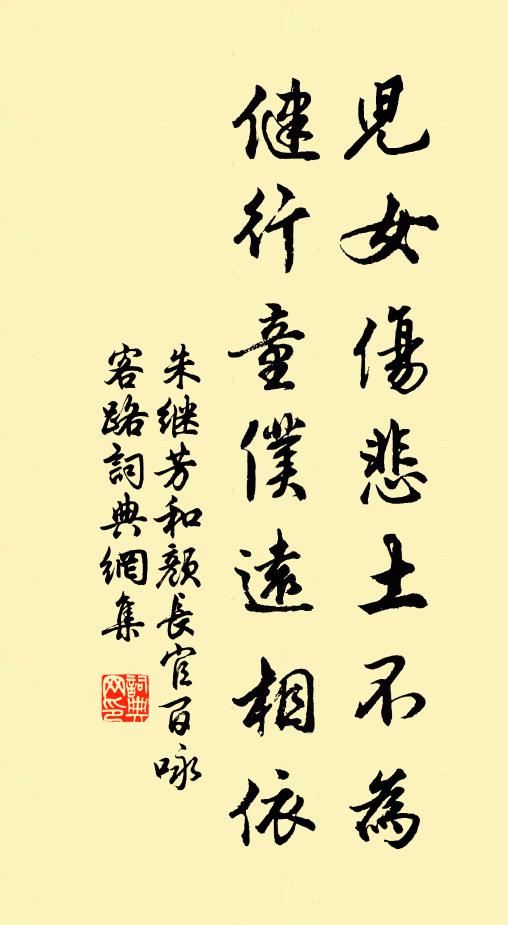 兒女傷悲土不為
健行童僕遠相依
朱继芳和顏長官百咏
客路詞典網集
詞典网印